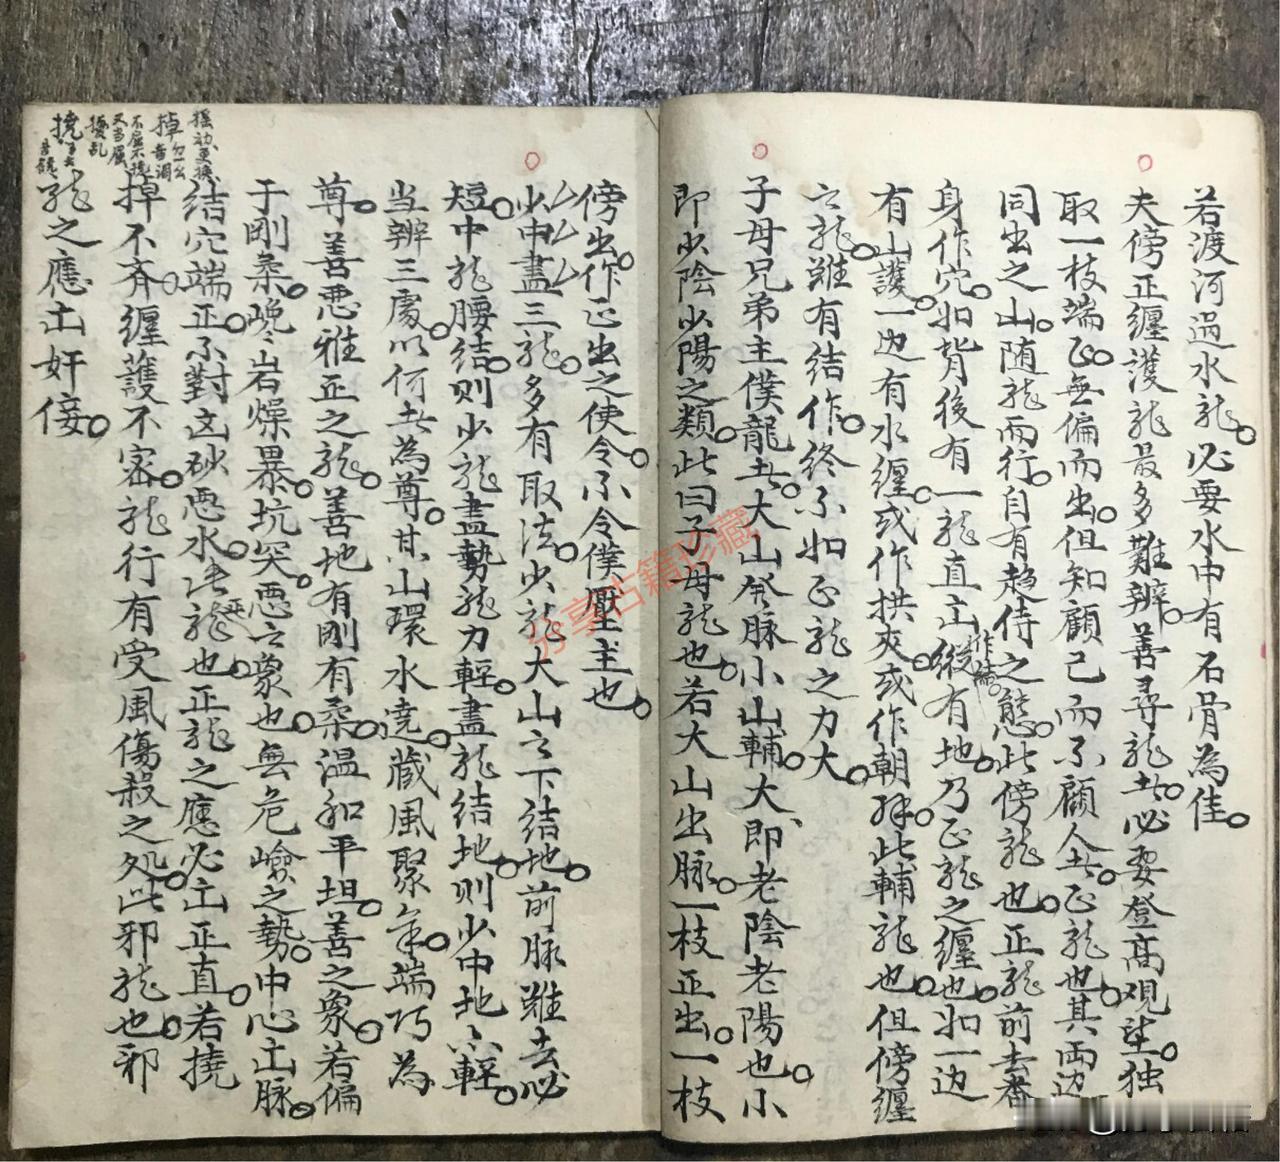 若渡河過水龍必要水中有石骨為佳
夫傍正纏護龍最多難辨善尋龍者必要登高观望独
取一枝端正無偏而出但知顧己而不顧人者正龍也其両边
同出之山随龍而行自有趋侍之態此傍龍也正龍前去番
身作穴如背後有一龍直立縱有地乃正龍之纏也如一边
作結
有山護一边有水纏或作拱夾或作朝拜此輔龍也但傍纏
之龍雖有結作終不如正龍之力大
子母兄弟主僕龍者大山發脉小山輔大即老陰老陽也小
即少陰少陽之類此曰子母龍也若大山出脉一枝正出一枝
傍出作正出之使令不令僕壓主也
少中盡三龍多有取法少龍大山之下結地前脉雖去必
短中龍腰結則少龍盡勢龍力輕盡龍結地則少中地亦輕
当辨三處以何者為尊其山環水繞藏風聚氣端巧為
尊善恶雅正之龍善地有剛有柔温和平坦善之象若偏
于剛柔巉岩燥暴坑突恶之象也無危嶮之勢中心出脉
結穴端正不對凶砂恶水者龍也正龍之應必出正直若撓
掉不斉纏護不密龍行有受風傷殺之処此邪龍也邪
龍之應出奸佞
摇动更换
掉 音調
不屈不撓
又当屈
擾乱
撓
分享古籍珍藏